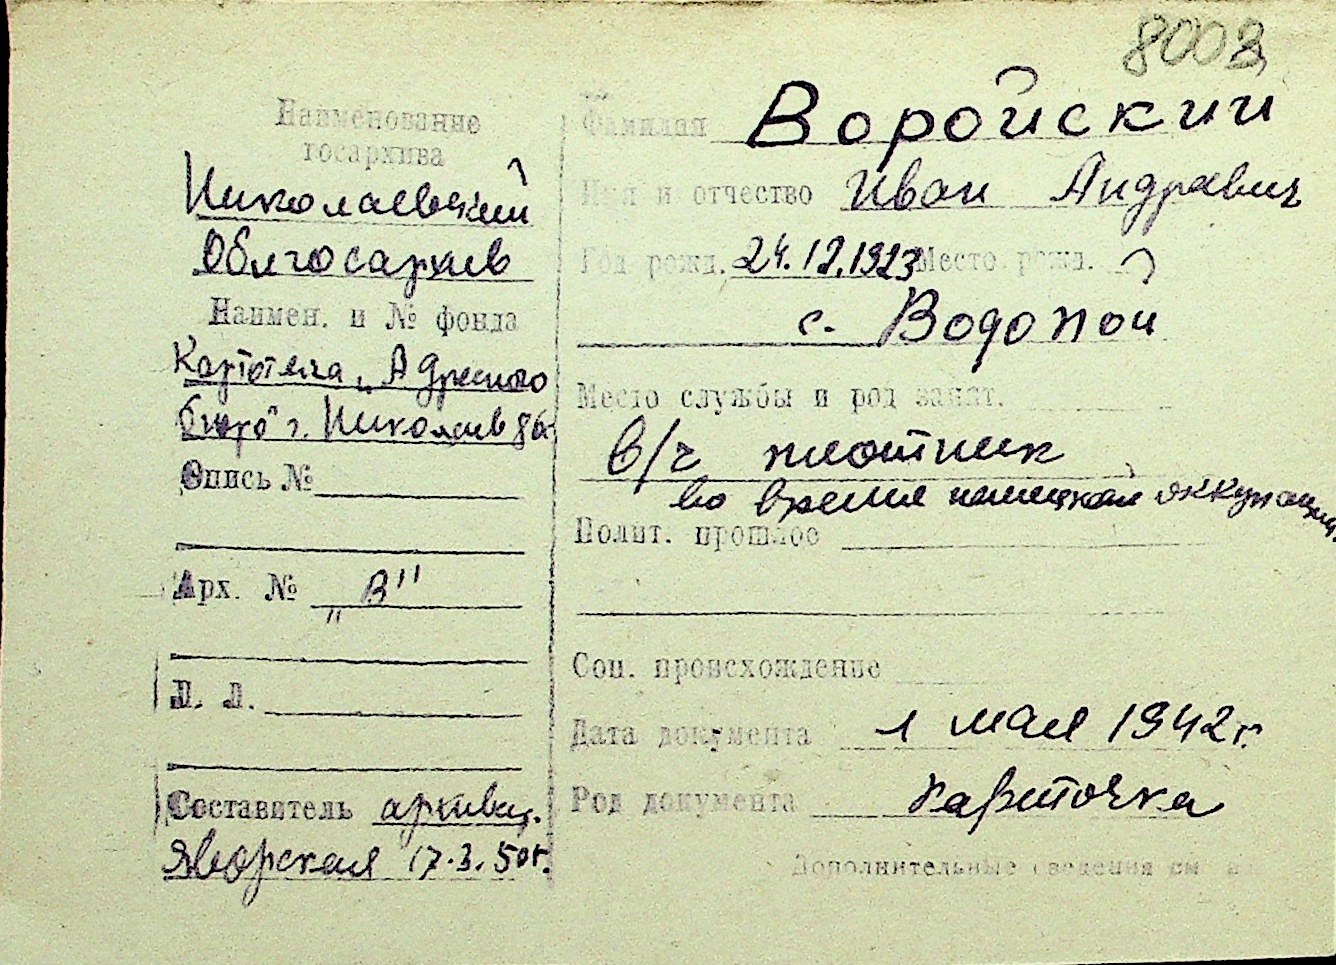 8003
Наименование
госархива
Николаевский
Облгосархив
Наимен. и № фонда
Картотека „Адресного
бюро" г. Николаев
Опись №
Арх. № „В"
Л. Л.
Составитель архивар.
Яворская 17.3.50г.
Фамилия Воройский
Имя и отчество Иван Андревич
Год рожд. 24.12.1923 Место рожд.
с. Водопой
Место службы и род занят.
в/ч плотник
во время немецкой оккупации
Полит. прошлое
Соц. происхождение
Дата документа 1 мая 1942 г.
Род документа карточка
Дополнительные сведения см на